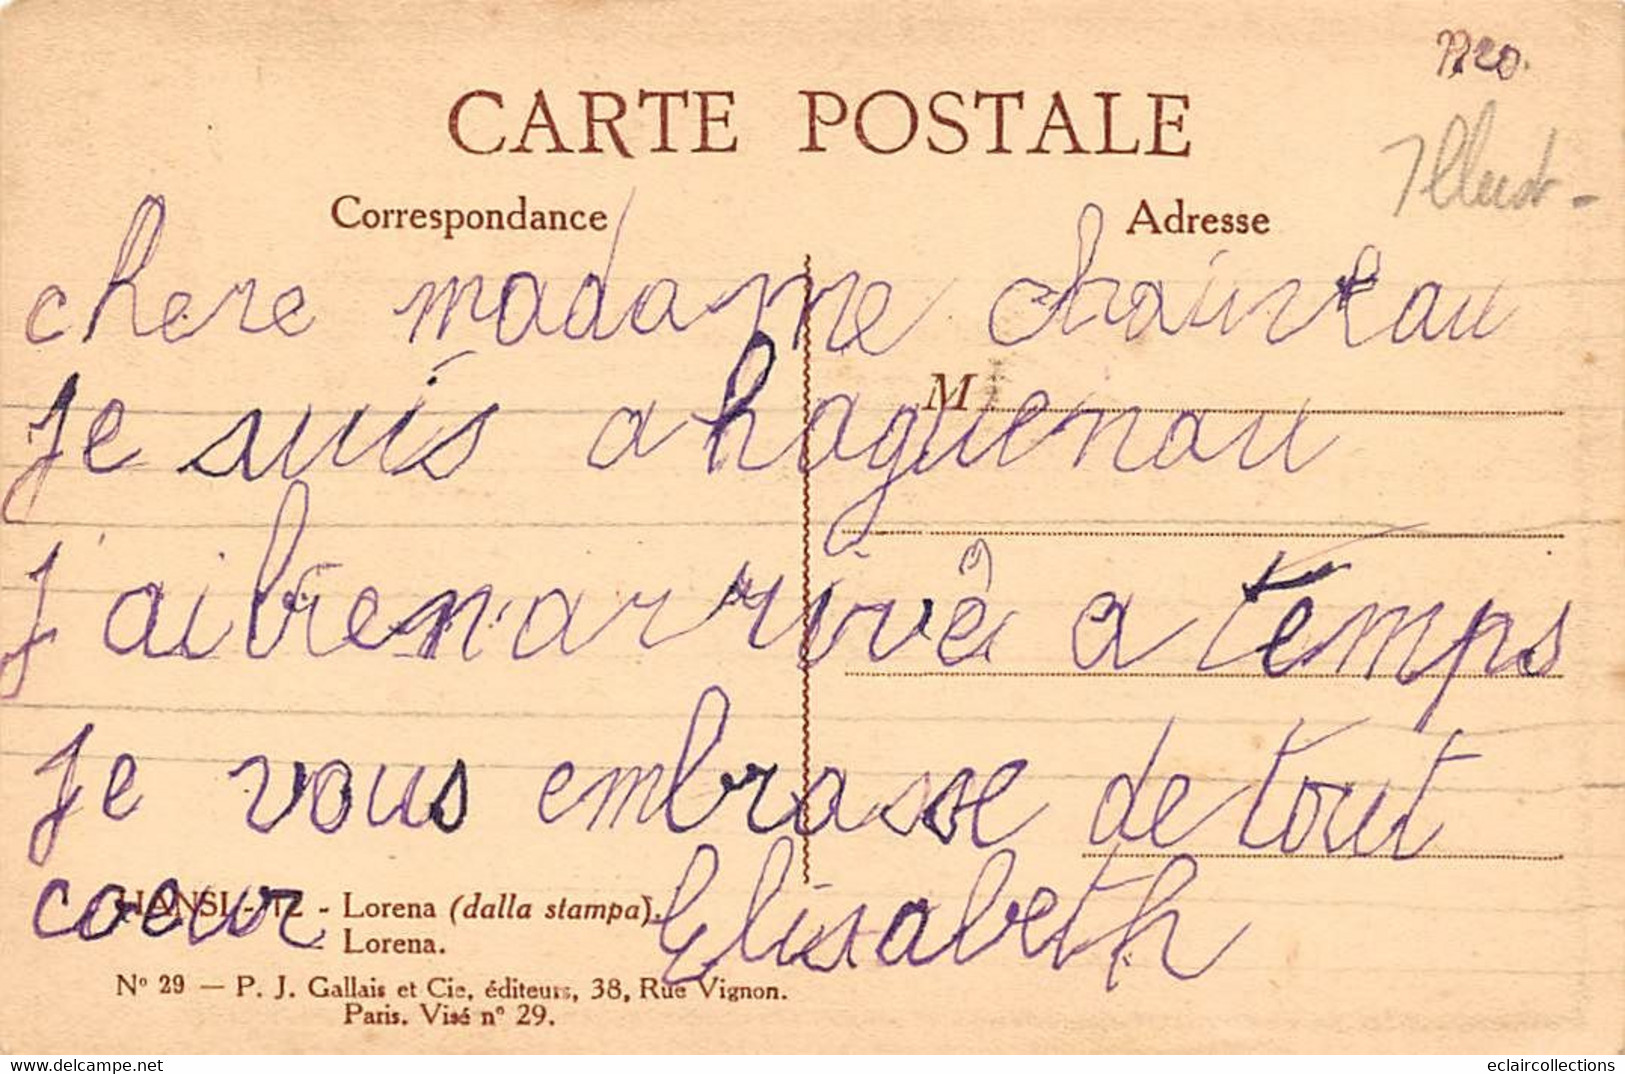 CARTE POSTALE
Correspondance
Adresse
Illust-
chere madame
Je suis a haguenau
M
J'ai bien arrivê a temps
Je vous embrasse de tout
coeur Elisabeth
HANSI - 12 - Lorena (dalla stampa).
- Lorena.
Nº 29 — P. J. Gallais et Cie, éditeurs, 38, Rue Vignon.
Paris. Visé nº 29.
eclaircollections